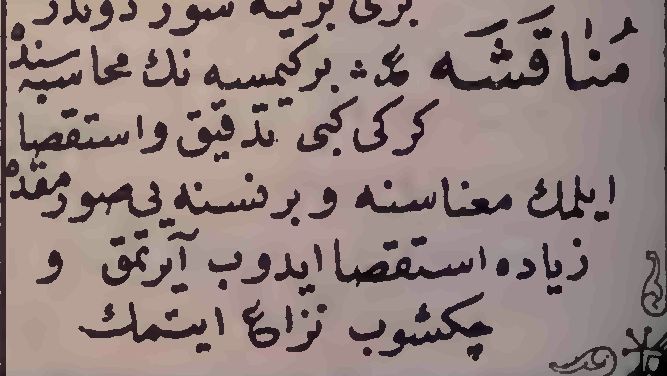 برى برينه سوز دوندر
مُنَاقَشَه ع ث بركيمسه نك محاسبه سنده
كركى كبى تدقيق واستقصا
ايلمك معناسنه وبرنسنه يى صورمقده
زياده استقصا ايدوب آيرتمق و
چكشوب نزاع ايتمك